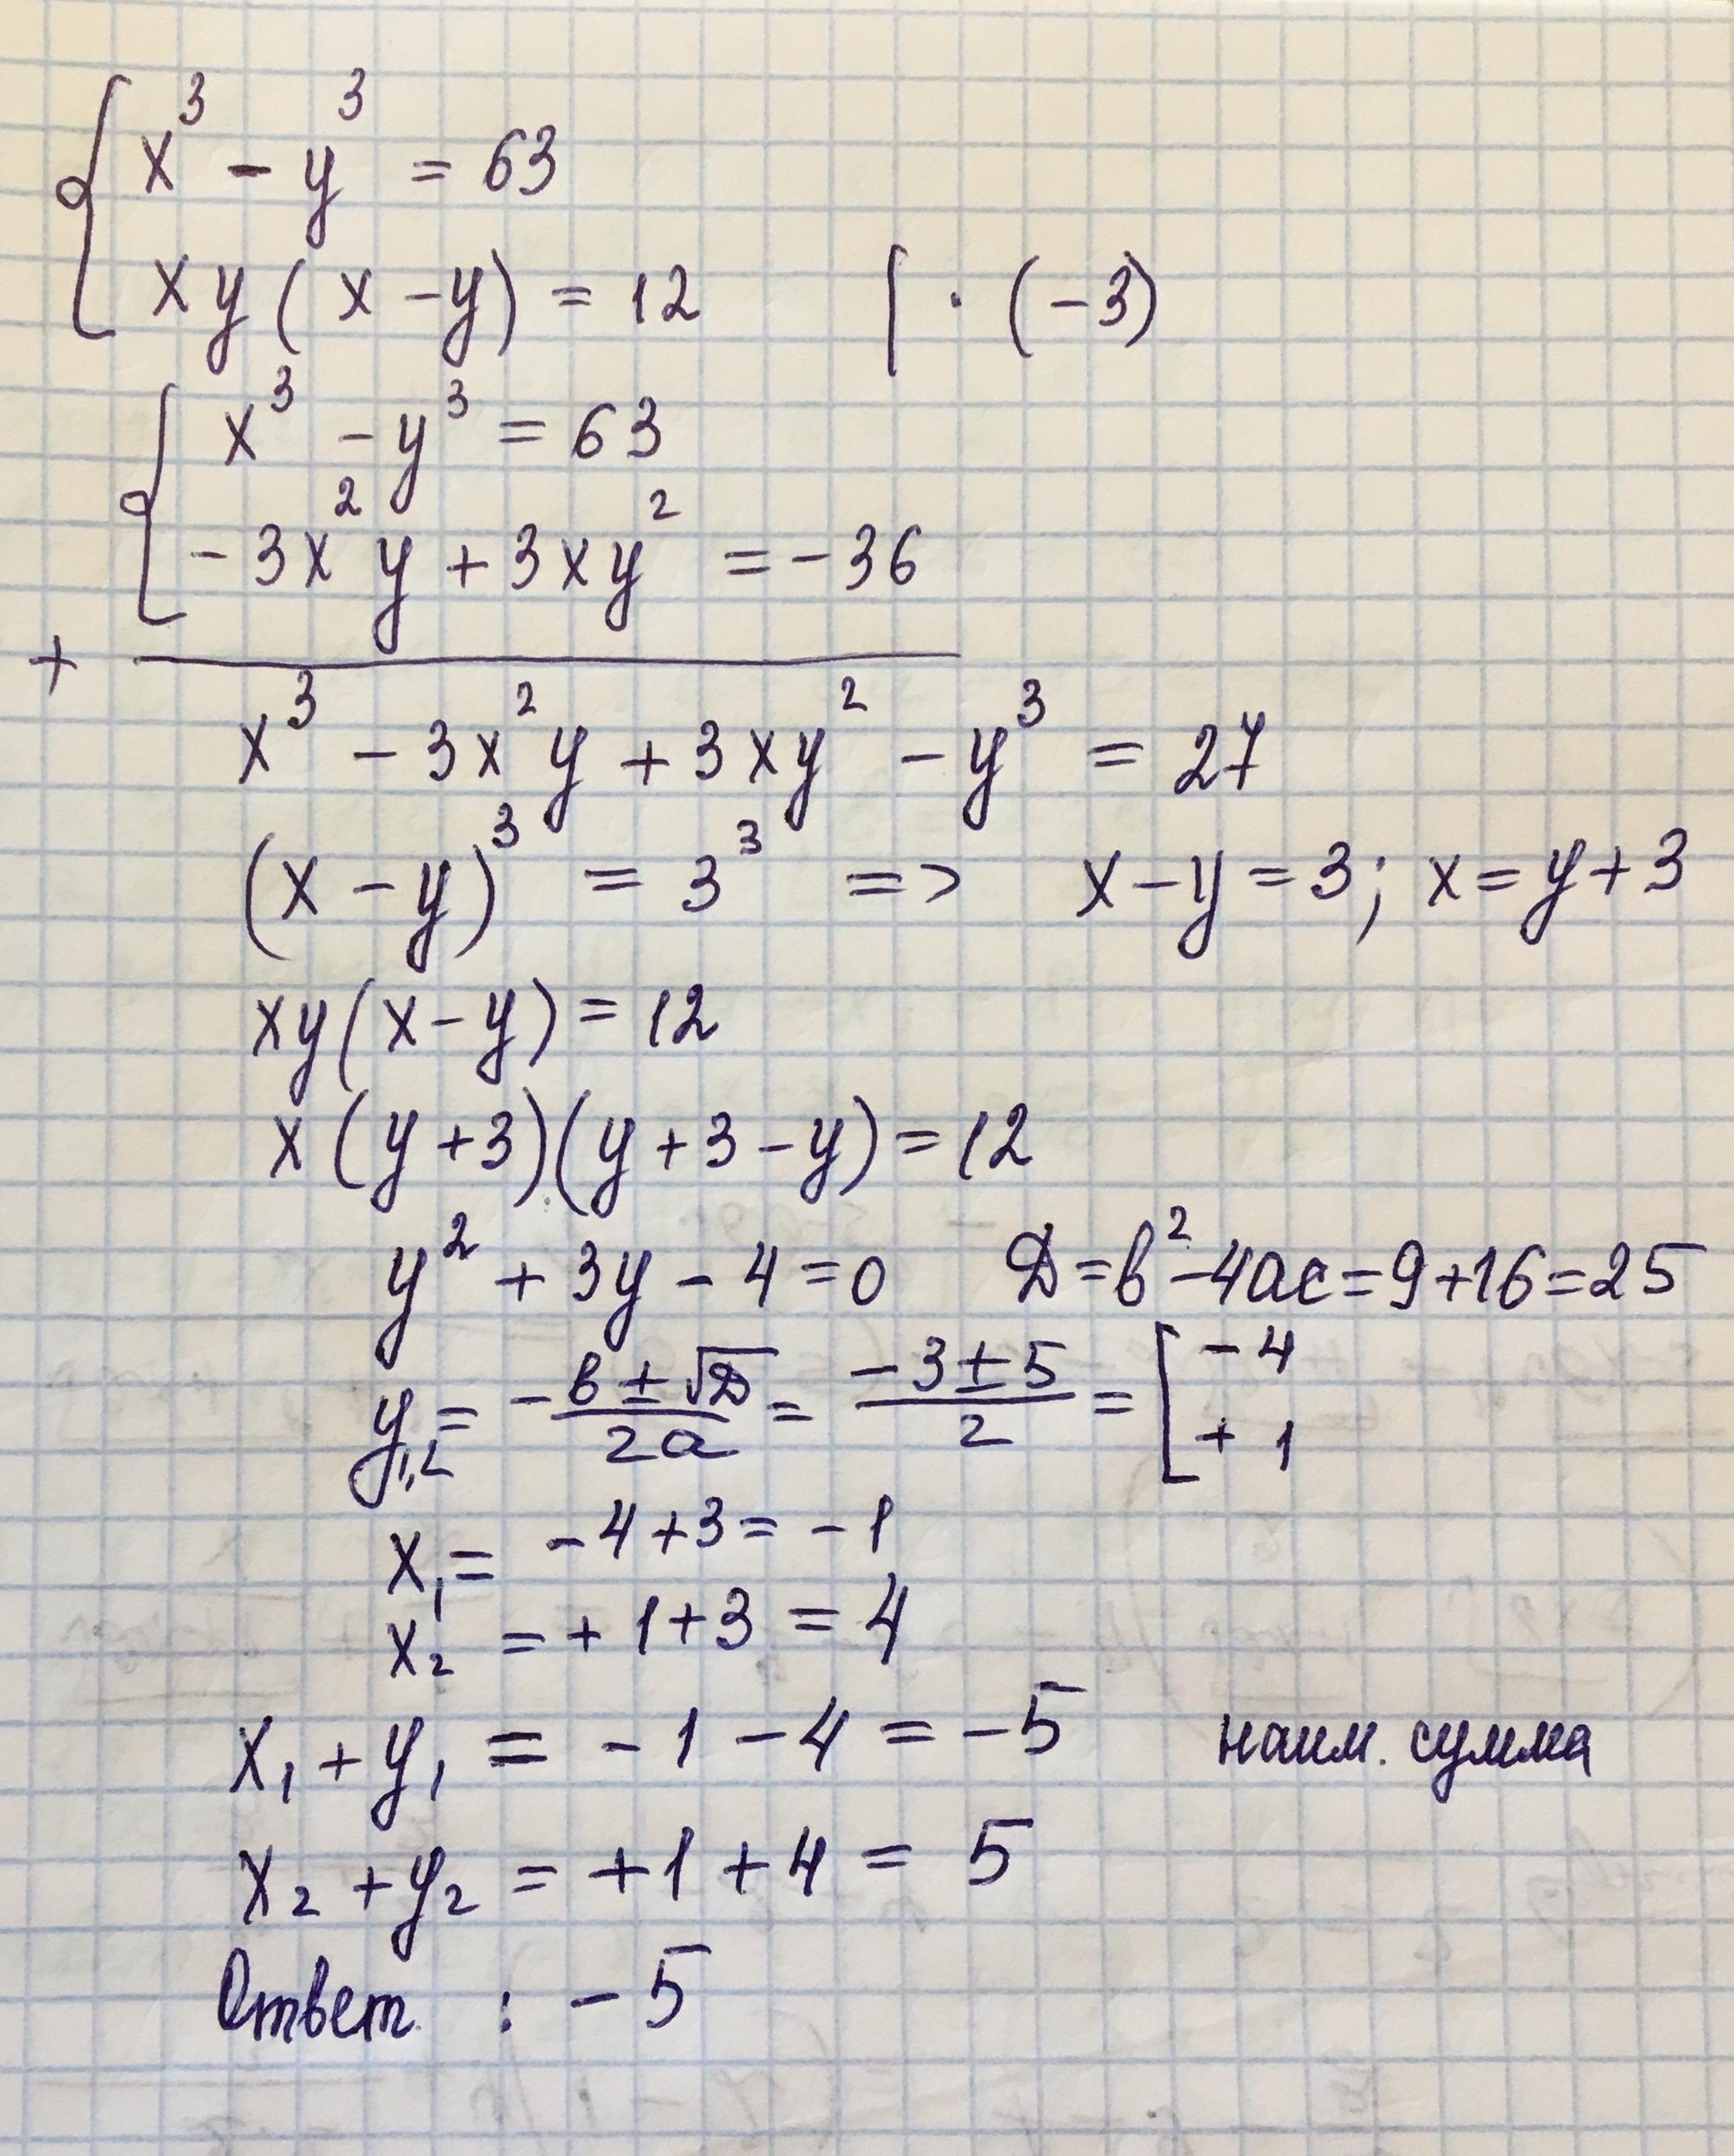 x³ - y³ = 63
xy(x-y) = 12 | · (-3)
x³ - y³ = 63
-3x²y + 3xy² = -36
+
x³ - 3x²y + 3xy² - y³ = 27
(x-y)³ = 3³ => x-y=3; x=y+3
xy(x-y) = 12
x(y+3)(y+3-y) = 12
y² + 3y - 4 = 0 D=b²-4ac=9+16=25
y₁,₂ = -b±√D/2a = -3±5/2 = [ -4
+ 1
x₁ = -4+3 = -1
x₂ = +1+3 = 4
x₁+y₁ = -1-4 = -5 наим. сумма
x₂+y₂ = +1+4 = 5
Ответ : -5